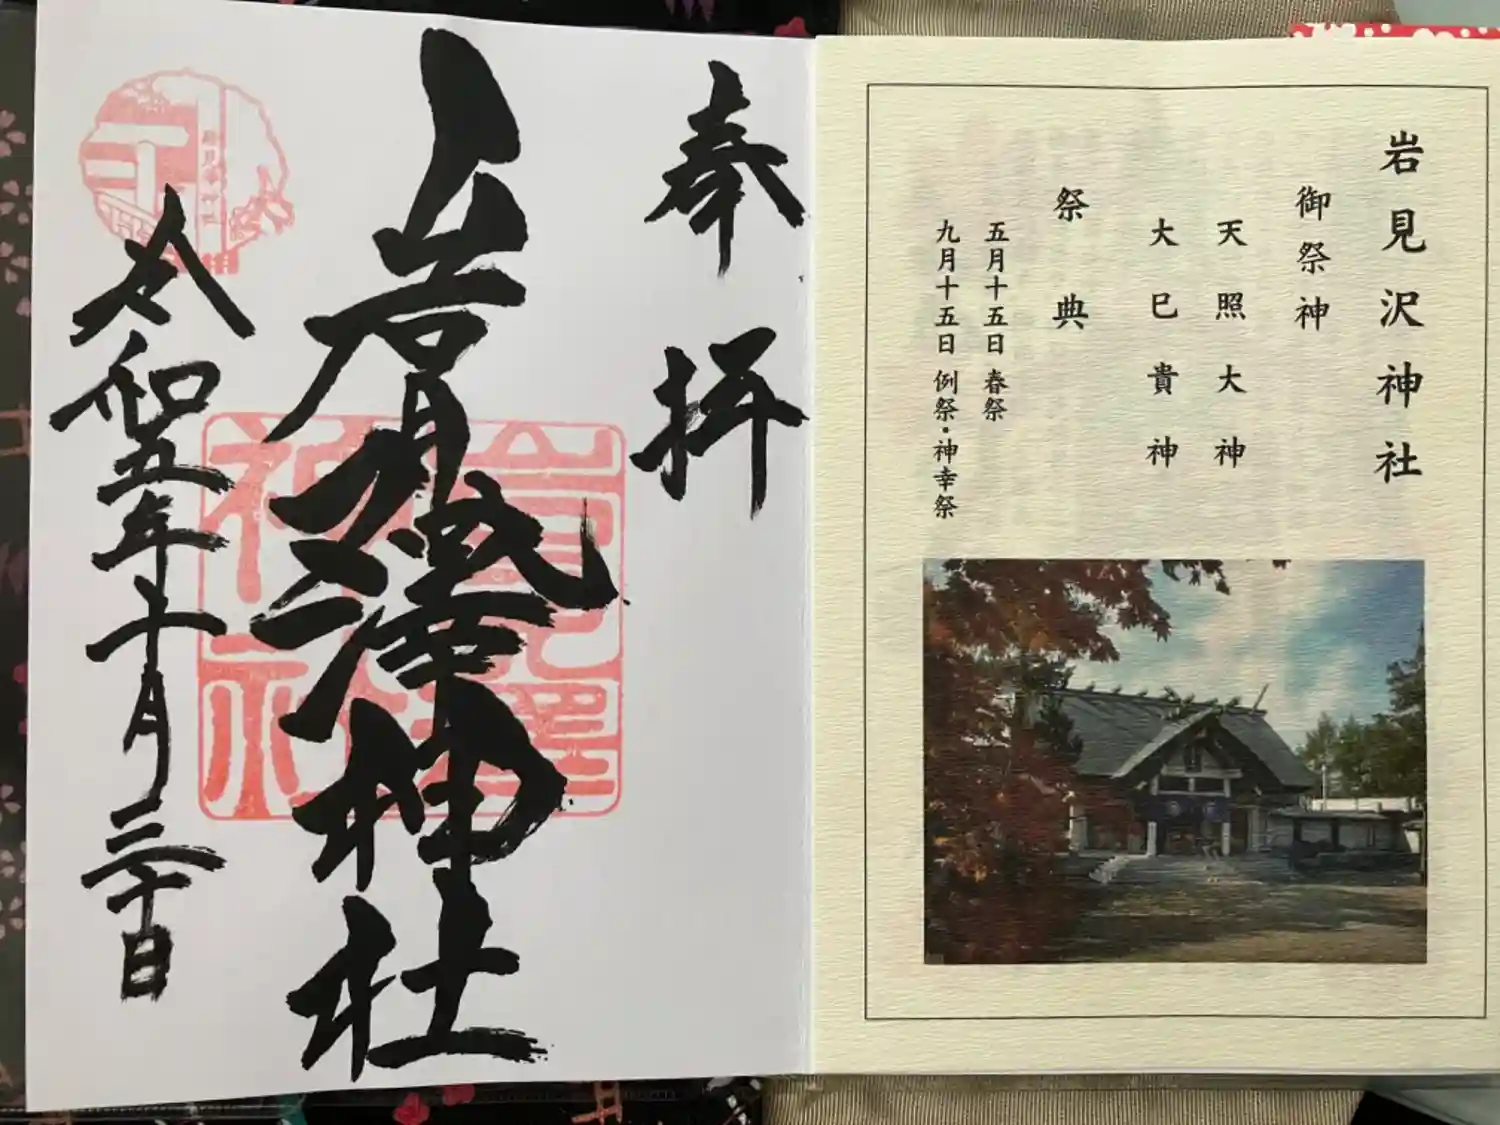 岩見沢神社
御祭神
天照大神
大巳貴神
祭典
五月十五日 春祭
九月十五日 例祭・神幸祭
奉拝
岩見澤神社
令和五年十月三十日
岩見澤神社